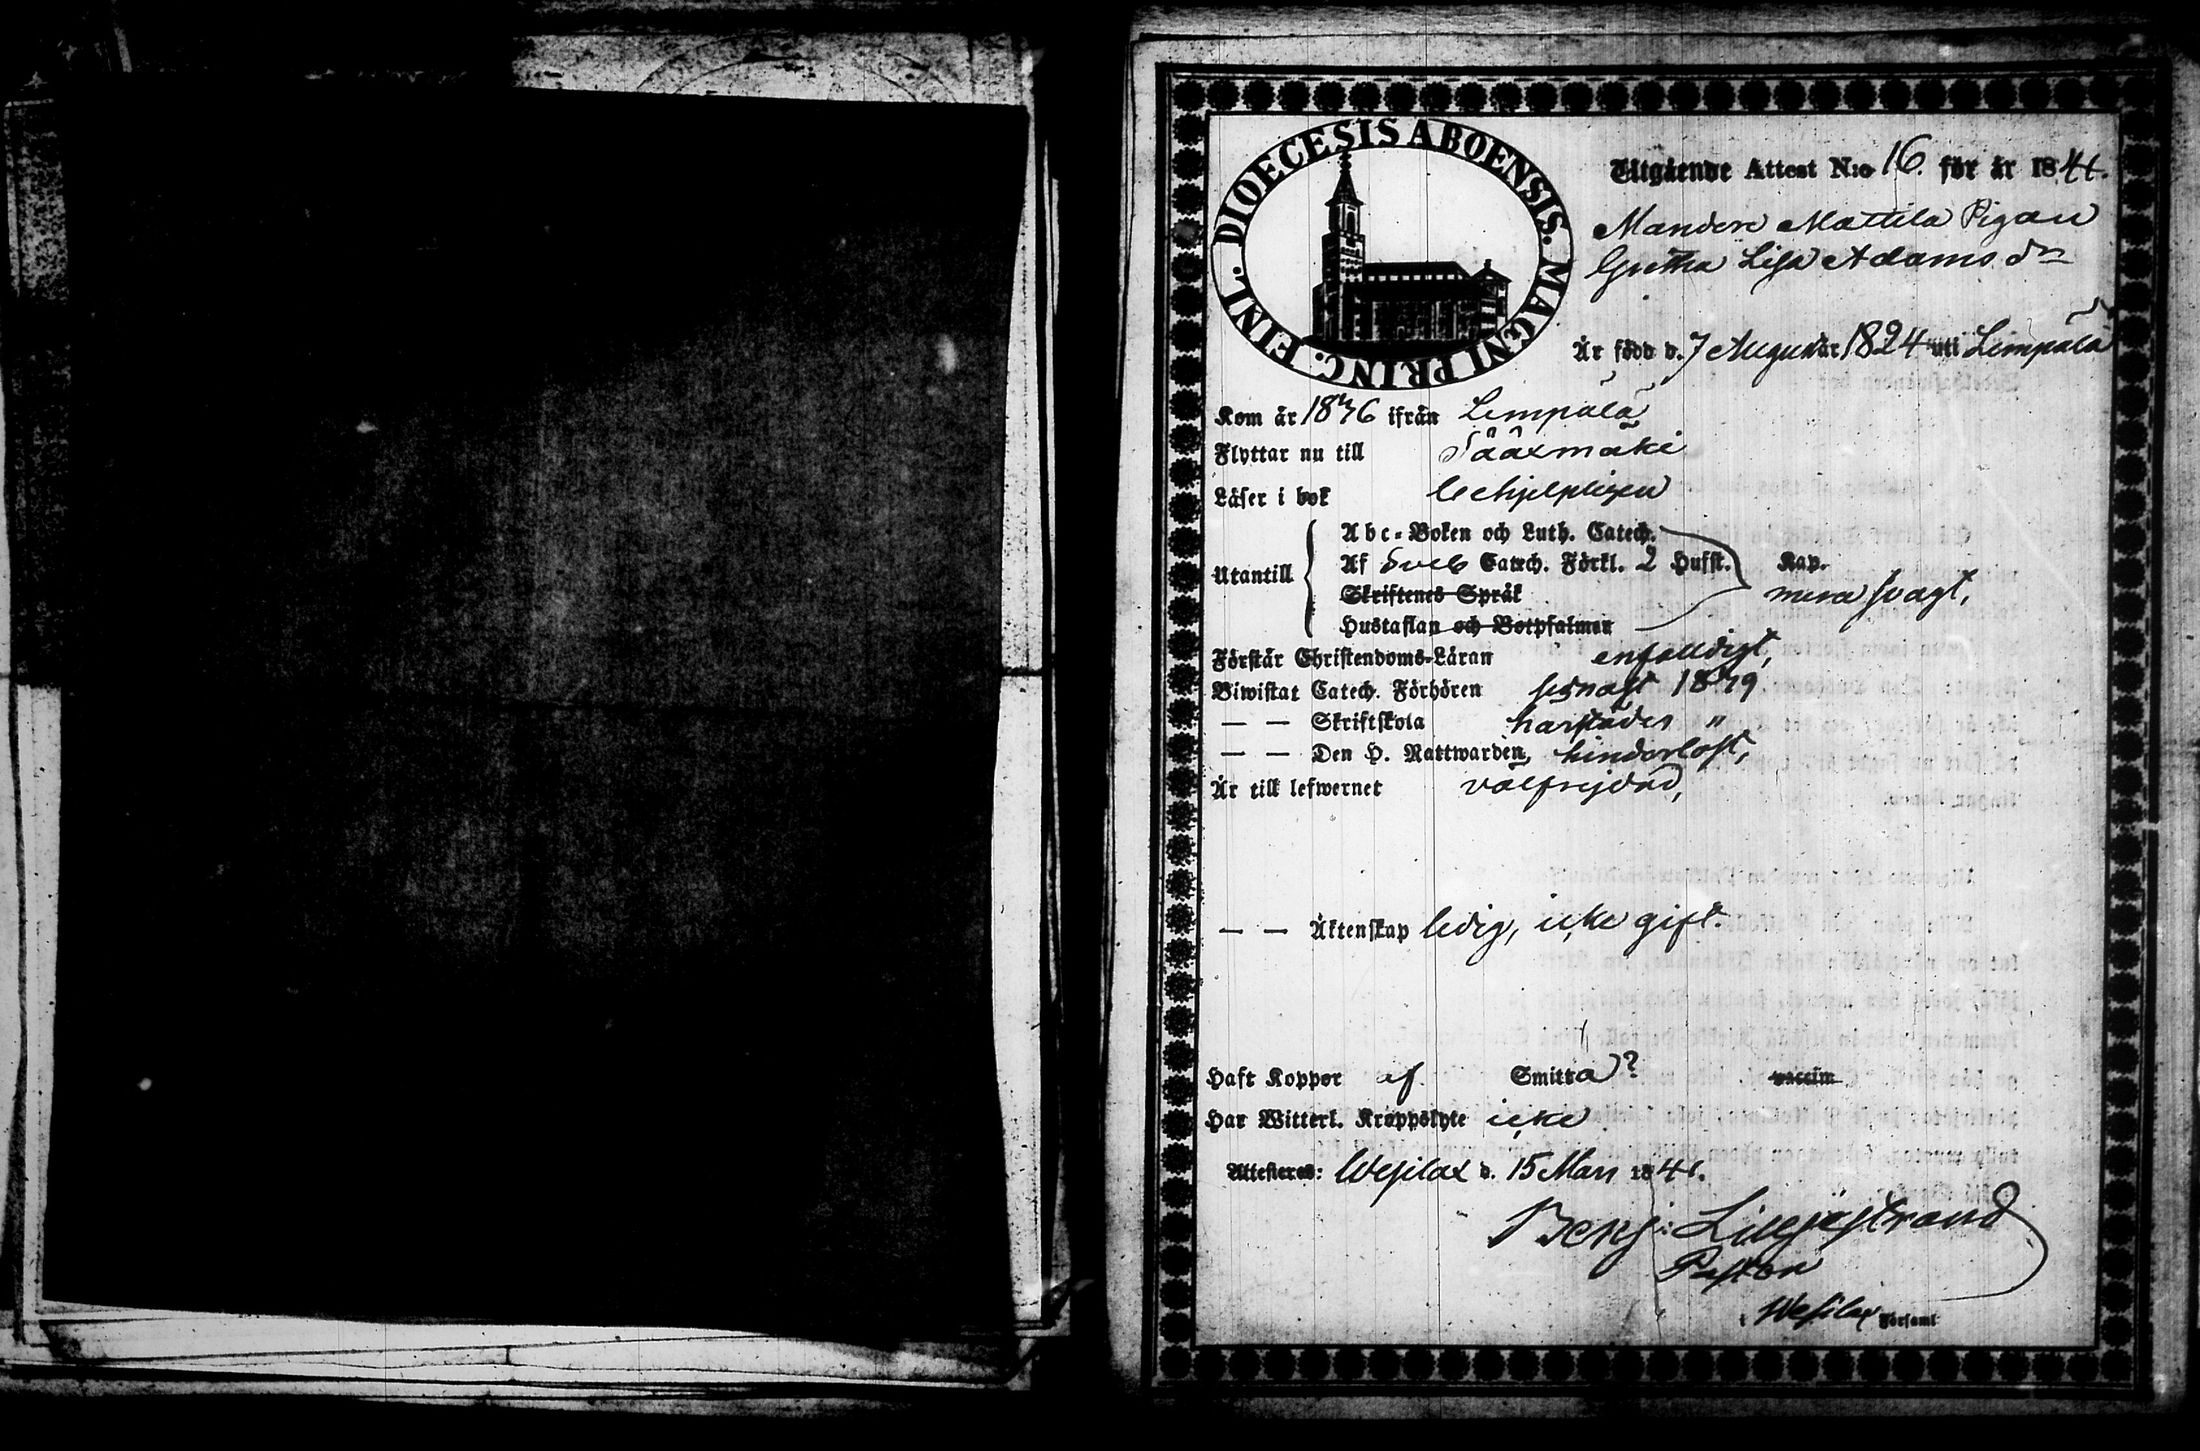 DIOECESIS ABOENSIS. MAGNI PRINC. FINL.
Utgående Attest N:o 16. för år 1841.
Mandere Mattila Pigan
Gretha Lisa Adams dr
Är född d. 7 August år 1824 uti Lempälä
Kom år 1836 ifrån Lempälä
Flyttar nu till Sääxmäki
Läser i bok behjelpligen
Utantill
Abc-Boken och Luth. Catech.
Af Sveb Catech. Förkl. 2 Hufst. Kap.
Skriftenes Språk
mera svagt,
Hustaflan och Botpsalmer
Förstår Christendoms-Läran enfaldigt,
Biwistat Catech. Förhören sednast 1839
— — Skriftskola härstädes "
— — Den H. Nattwarden, hinderlöst,
Är till lefwernet välfrejdad,
— — Äktenskap ledig, icke gift.
Haft Koppor af Smitta? vaccin
Har Witterl. Kroppslyte icke
Attesteras: Wesilax d. 15 Mars 1841.
Benj: Liljestrand
Pastor
i Wesilax Församl